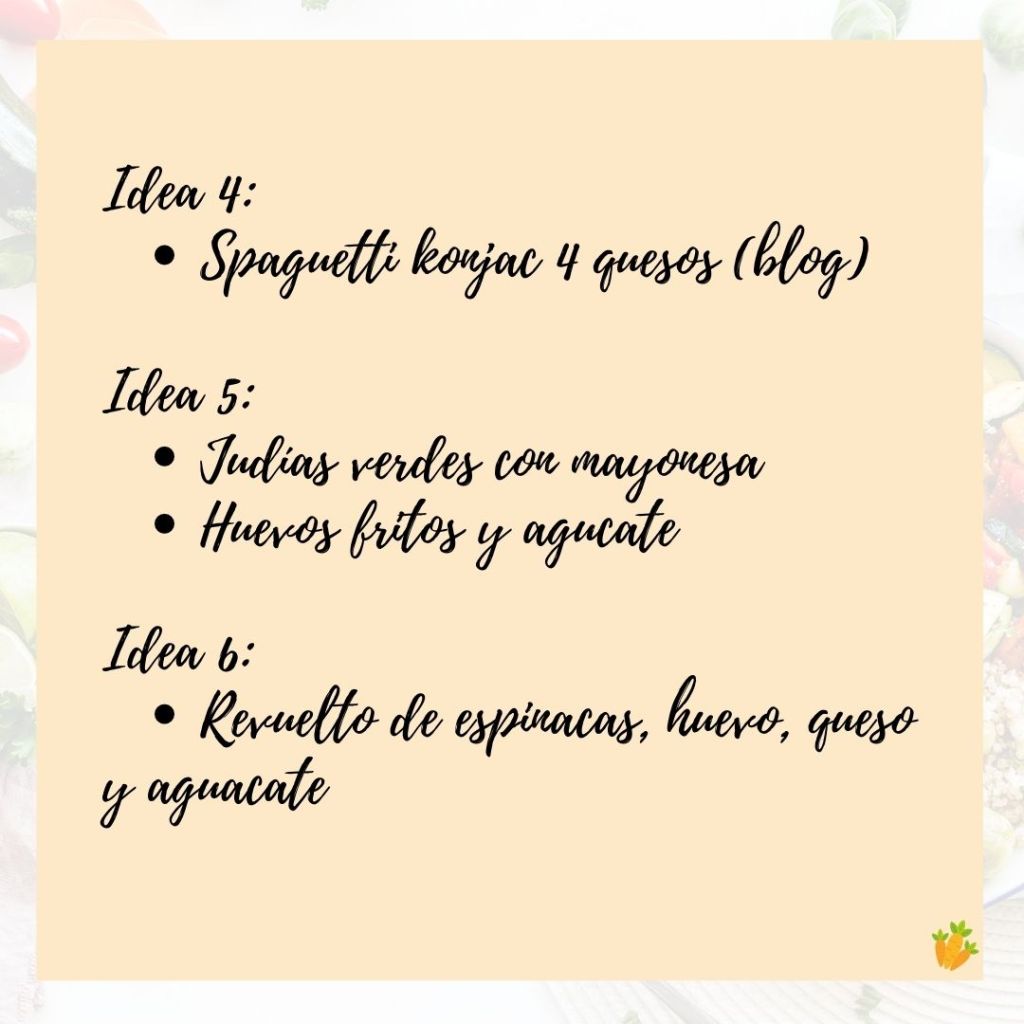 Idea 4:
• Spaguetti konjac 4 quesos (blog)
Idea 5:
• Judías verdes con mayonesa
• Huevos fritos y agucate
Idea 6:
• Revuelto de espinacas, huevo, queso
y aguacate